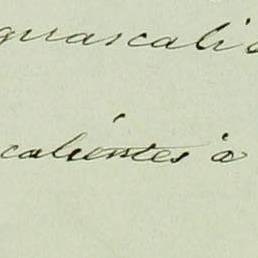 guascalie
calientes à